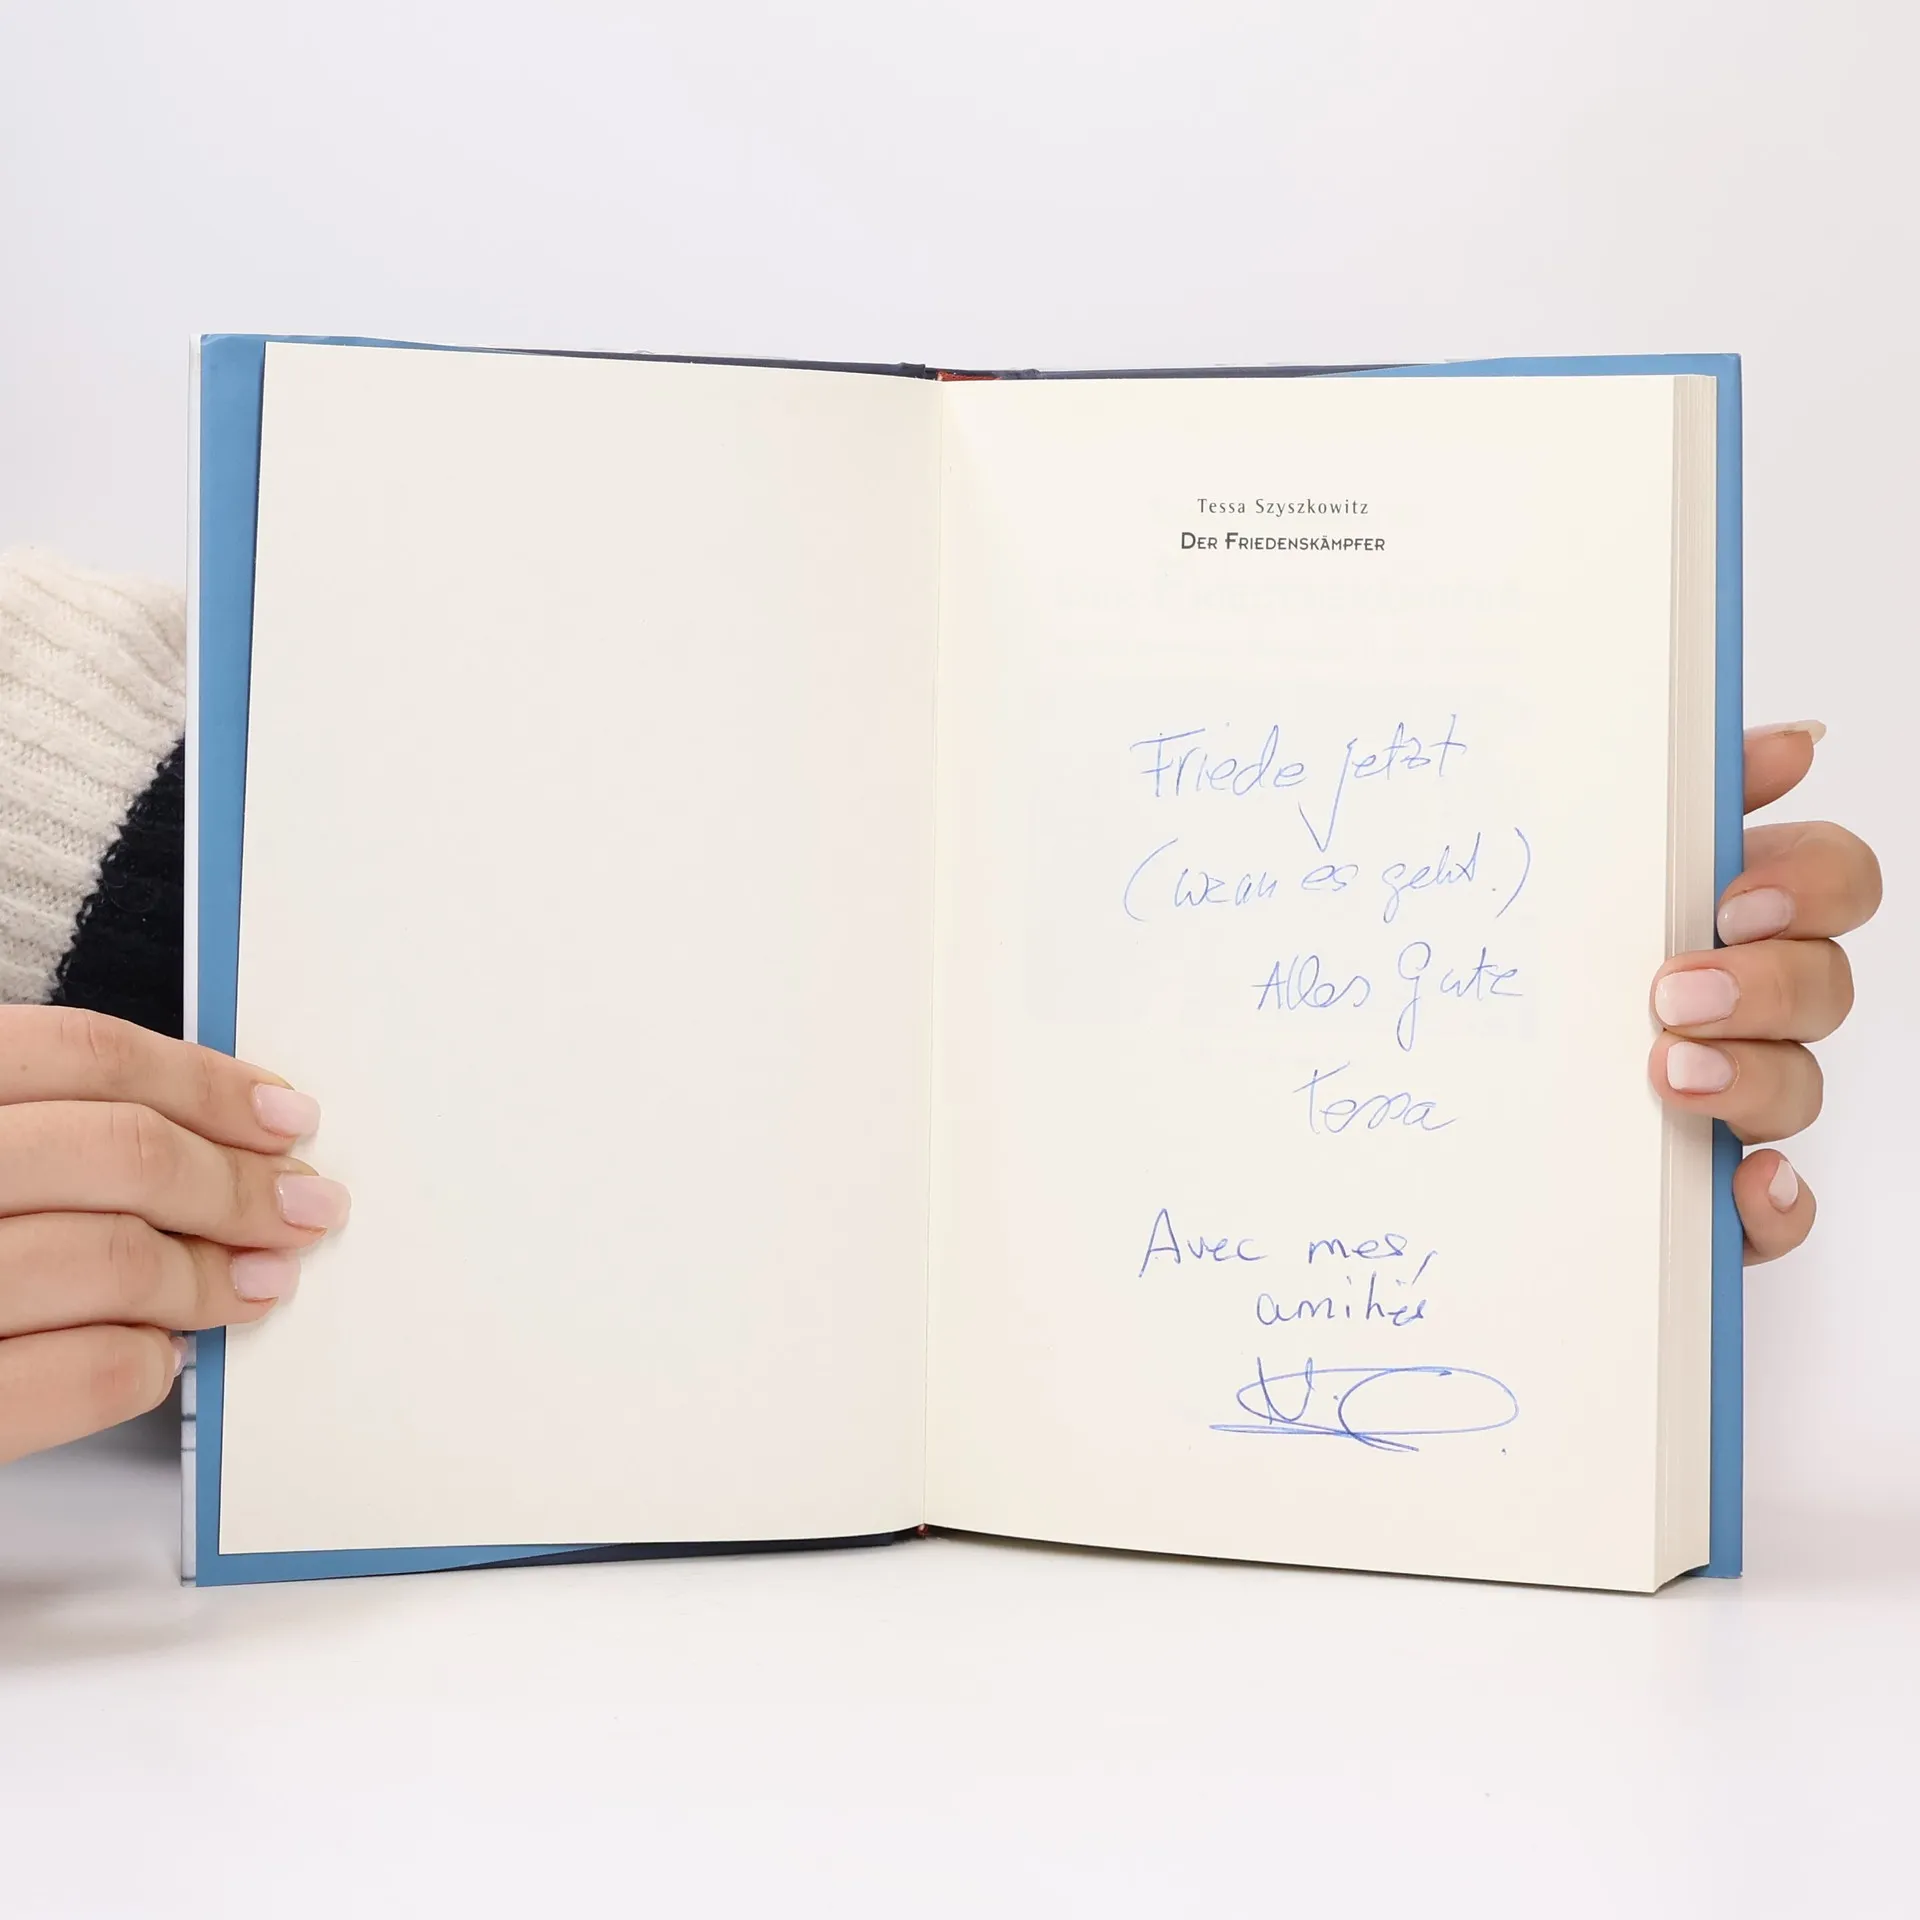 Tessa Szyszkowitz
DER FRIEDENSKÄMPFER
Friede jetzt
(wenn es geht.)
Alles Gute
Tessa
Avec mes
amitiés